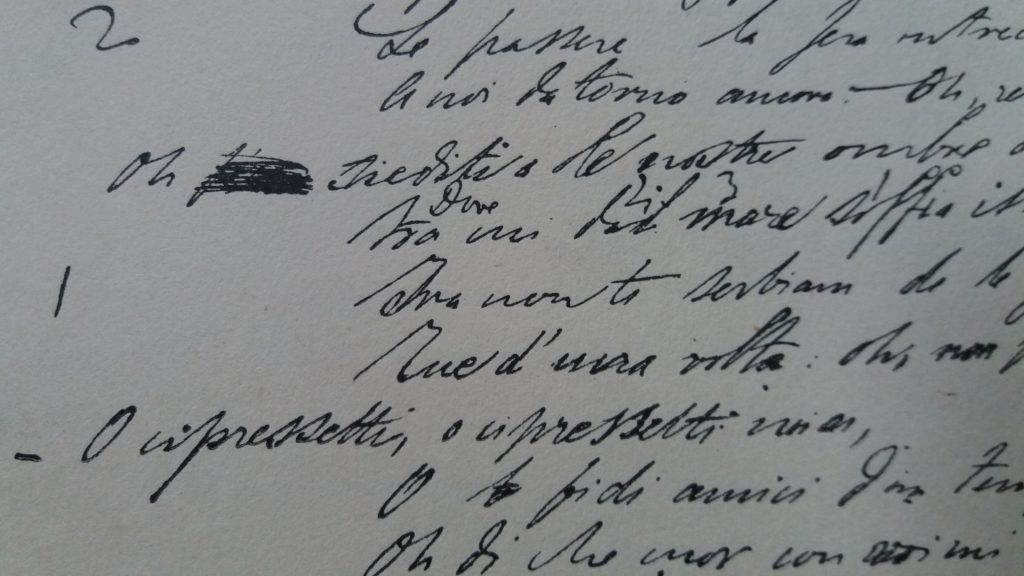 2 Le passere la sera intrec
A noi da torno ancora. — Oh, re
Oh siediti a le nostre ombre
Dove il
tra un dal mare soffia
1 Ira non ti serbiam de le
Tue d'una volta: oh, non
- O cipressetti, o cipressetti miei,
O fidi amici d'un tem
Oh di che cuor con voi mi